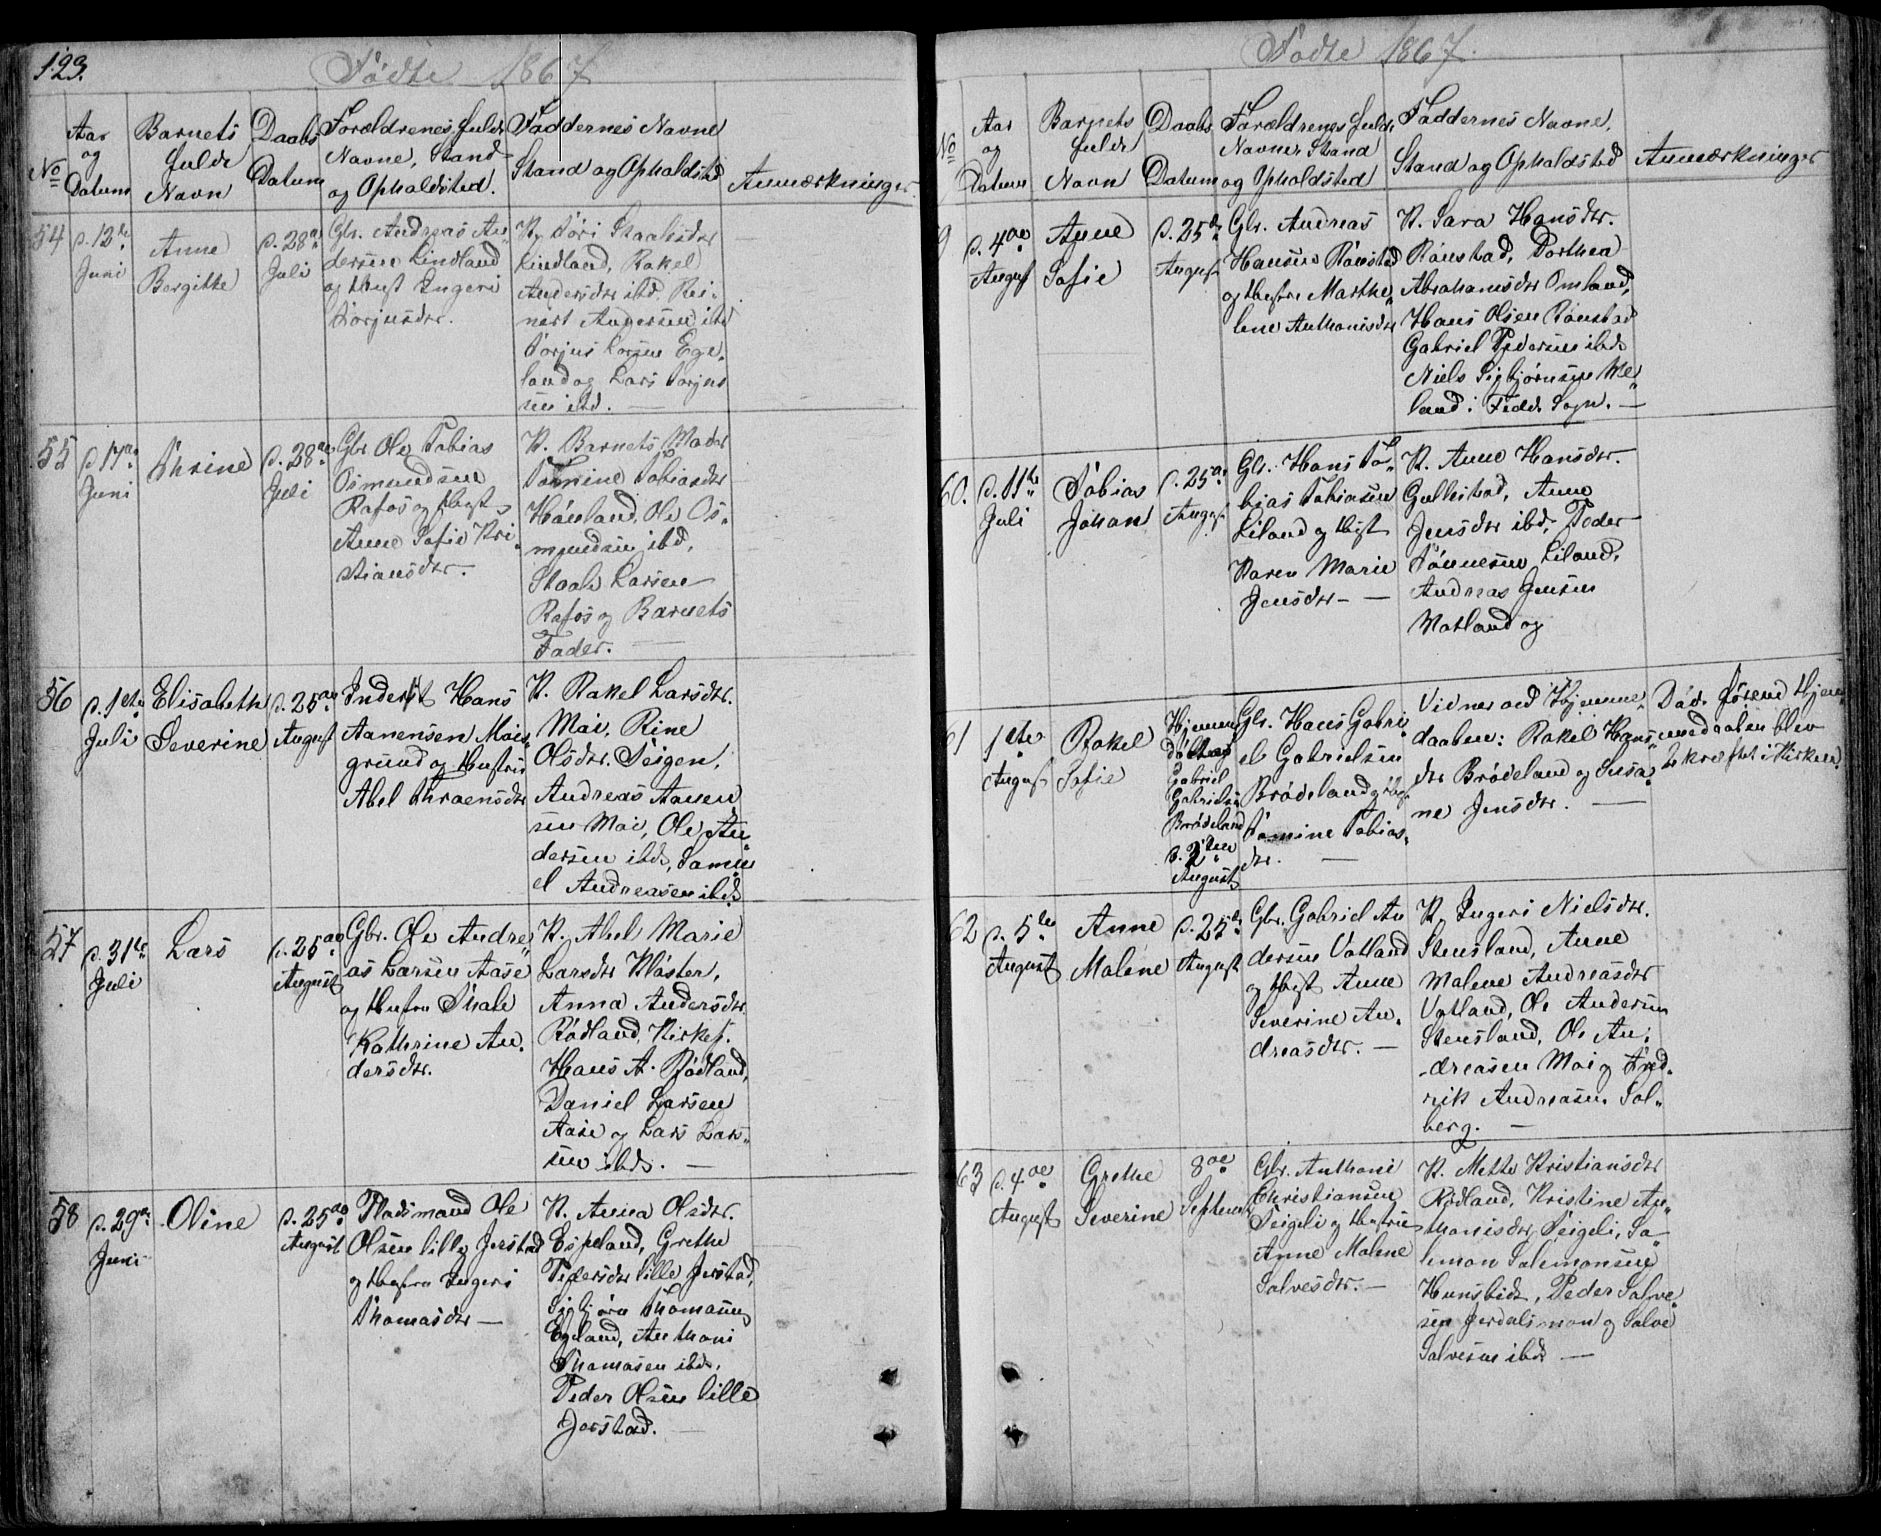 123.
Födte 1867
No
Aar
og
Datum
Barnets
fulde
Navn
Daabs
Datum
Forældrenes fulde
Navne, Stand
og Opholdsted.
Faddernes Navne
Stand og Opholdsted
Anmærkninger
54
d. 12te
Juni
Anne
Bergitte
d. 28de
Juli
Gbr. Andreas An„
dersen Lindland
og Hust Ingeri
Torjusdtr.
K. Siri Staalesdtr
Lindland, Rakel
Andersdtr ibd. Rei„
nert Andersen ibd
Torjus Larsen Ege„
land og Lars Torjus
sen ibd. —
55
d 17de
Juni
Thrine
d. 28de
Juli
Gbr Ole Tobias
Osmundsen
Rafos og Hust
Anne Sofie Kri„
stiansdtr.
K. Barnets Moder
Tomine Tobiasdtr
Hamland, Ole Os„
mundsen ibd.
Staale Larsen
Rafos og Barnets
Fader. —
56
d. 1ste
Juli
Elisabeth
Severine
d. 25de
August
Inderst Hans
Aanensen Moi„
grund og Hustru
Abel Thraensdtr
K. Rakel Larsdtr.
Moi, Rine
Olsdtr. Seigen,
Andreas Aanen
sen Moi, Ole An„
dersen ibd, Samu„
el Andreasen ibd
57
d. 31te
Juli
Lars
d. 25de
August
Gbr. Ole Andre„
as Larsen Aase
og Hustru Thale
Kathrine An„
dersdtr.
K. Abel Marie
Larsdtr Kloster,
Anna Andersdtr
Rødland, Kirkef.
Hans A. Rødland,
Daniel Larsen
Aase og Lars Lar„
sen ibd. —
58
d. 29de
Juni
Oline
d. 25de
August
Pladsmand Ole
Olsen lille Jerstad
og Hustru Ingeri
Thomasdtr —
K. Anna Olsdtr.
Espeland, Grethe
Pedersdtr lille Jerstad,
Sigbjörn Thomasen
Egeland, Anthoni
Thomasen ibd.
Peder Olsen lille
Jerstad. —
Födte 1867.
No
Aar
og
Datum
Barnets
fulde
Navn
Daabs
Datum
Forældrenes fulde
Navne Stand
og Opholdsted
Faddernes Navne,
Stand og Opholdsted
Anmærkninger
9
d. 4de
August
Anne
Sofie
d. 25de
August
Gbr. Andreas
Hansen Rönstad
og Hustru Marthe„
lene Anthonisdtr
K. Sara Hansdtr.
Rönstad, Dorthea
Abrahamsdtr Omland,
Hans Olsen Rönstad
Gabriel Pedersen ibd
Niels Sigbjörnsen Me„
land i Fede Sogn. —
60.
d. 11te
Juli
Tobias
Johan
d. 25de
August
Gbr. Hans To„
bias Tobiasen
Liland og Hust
Karen Marie
Jensdtr —
K. Anne Hansdtr.
Gullestad, Anne
Jensdtr ibd, Peder
Tönnesen Liland,
Andreas Jensen
Vatland og
61
1ste
August
Rakel
Sofie
Hjemme
döbt af
Gabriel
Gabrielsen
Brödeland
d. 2den
August
Gbr. Hans Gabri„
el Gabrielsen
Brödeland og Hust
Tomine Tobias„
dtr. —
Vidner ved Hjemme„
daaben: Rakel Hans„
dtr Brödeland og Susa„
ne Jensdtr. —
Död förend Hjem„
medaaben blev
bekræftet i Kirken.
62
d. 5te
August
Anne
Malene
d. 25de
August
Gbr. Gabriel An
dersen Vatland
og Hust Anne
Severine An„
dreasdtr. —
K. Ingeri Nielsdtr.
Stensland, Anne
Malene Andreasdtr
Vatland, Ole Andersen
Stensland, Ole An„
dreasen Moi og Fred„
rik Andreasen Sol„
berg. —
63
d. 4de
August
Grethe
Severine
8de
Septembr
Gbr. Anthoni
Christiansen
Seigeli og Hustru
Anne Malene
Salvesdtr. —
K. Mette Kristiansdtr
Rödland, Kristine An„
thonisdtr Seigeli, Sa„
lemon Salemonsen
Hunsbedt, Peder Salve„
sen Jerdalsmon og Salve
Salvesen ibd —